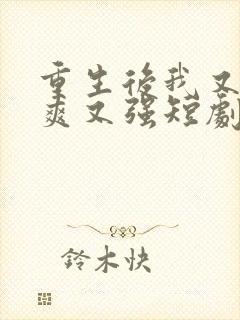 重生後我又
爽又強短劇
鈴木快